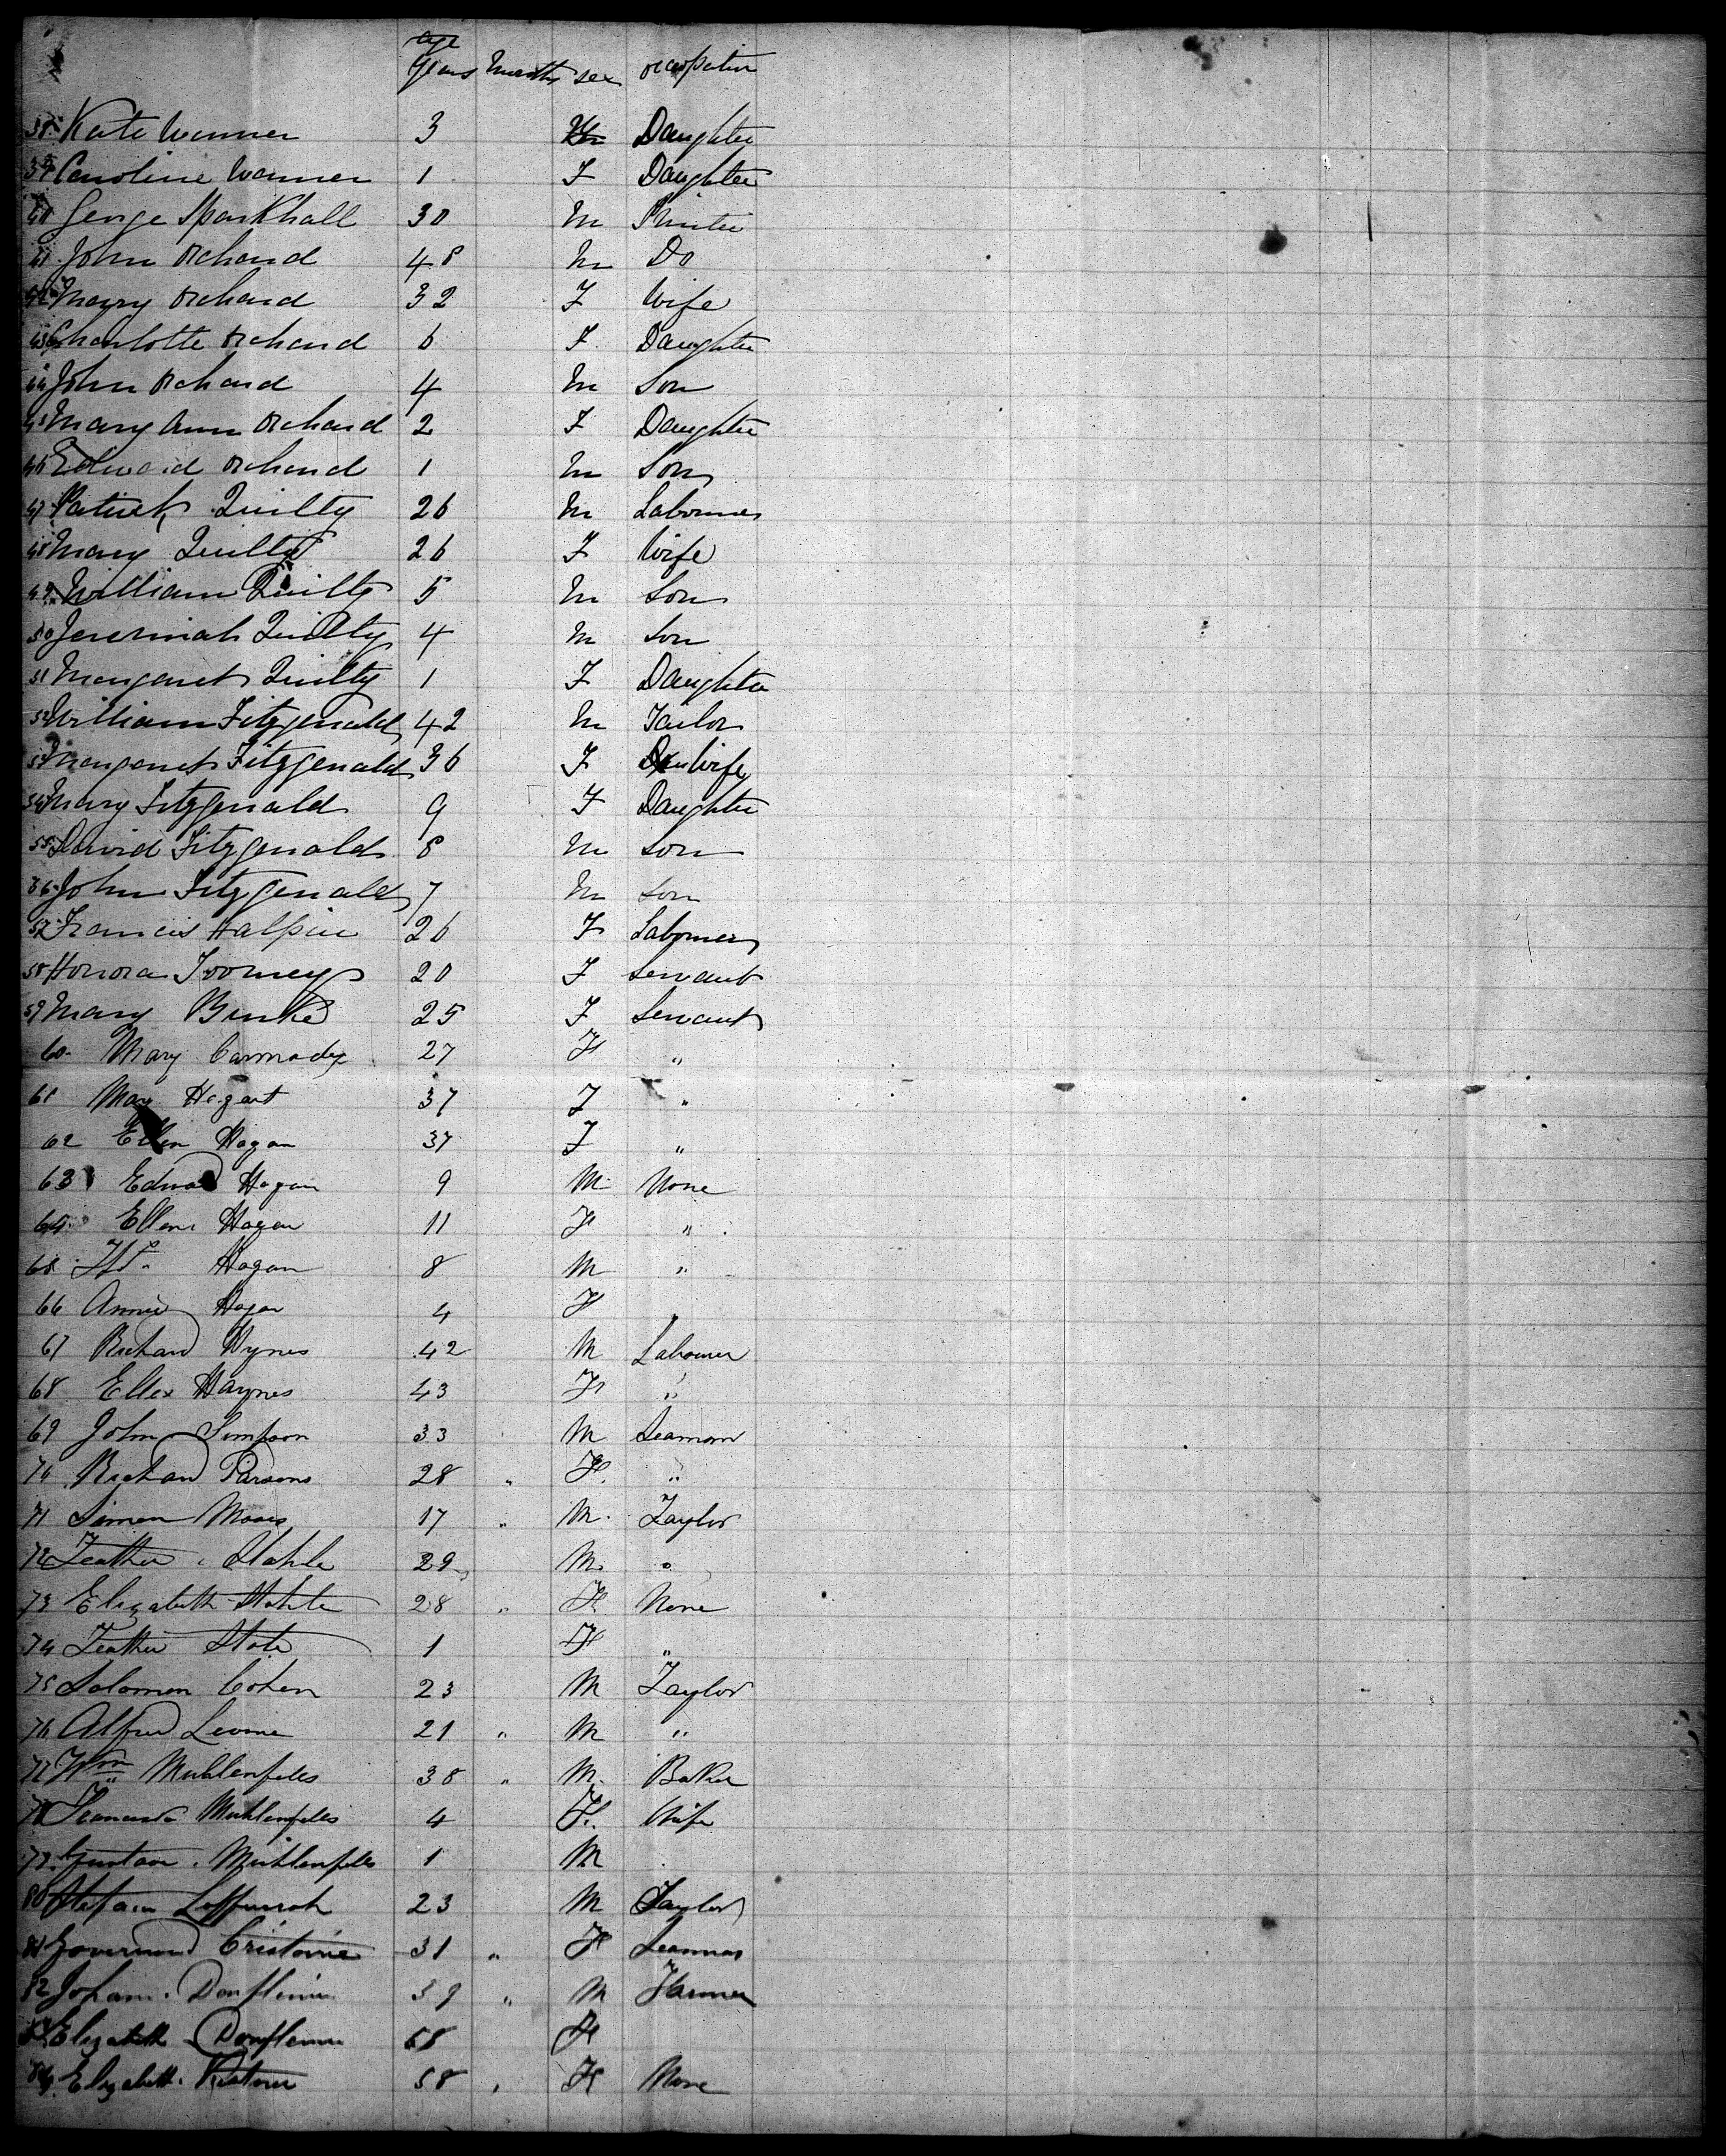 age
years months sex occupation
38 Kate Wanner 3 Daughter
39 Caroline Wanner 1 F Daughter
40 George Sparkhall 30 M Printer
41 John Orchard 48 M Do
42 Mary Orchard 32 F Wife
43 Charlotte Orchard 6 F Daughter
44 John Orchard 4 M Son
45 Mary Ann Orchard 2 F Daughter
46 Edward Orchard 1 M Son
47 Patrick Quilty 26 M Labourer
48 Mary Quilty 26 F Wife
49 William Quilty 5 M Son
50 Jeremiah Quilty 4 M Son
51 Margaret Quilty 1 F Daughter
52 William Fitzgerald 42 M Tailor
53 Margaret Fitzgerald 36 F Wife
54 Mary Fitzgerald 9 F Daughter
55 David Fitzgerald 8 M Son
56 John Fitzgerald 7 M Son
57 Francis Halpin 26 F Labourer
58 Honora Toomey 20 F Servant
59 Mary Burke 25 F Servant
60 Mary Carmody 27 F "
61 Mary Hogart 37 F "
62 Ellen Hogan 37 F "
63 Edward Hogan 9 M None
64 Ellen Hogan 11 F "
65 Hogan 8 M "
66 Annie Hogan 4 F "
67 Richard Hynes 42 M Labourer
68 Ellen Haynes 43 F "
69 John Simpson 33 M Seaman
70 Richard Parsons 28 " F "
71 Simon Moses 17 " M Taylor
72 Stahle 29 M "
73 Elizabeth Stahle 28 " F None
74 1 F "
75 Solomon Cohen 23 M Taylor
76 Alfred Levine 21 " M "
77 Wm Muhlenfeles 38 " M Baker
78 Muhlenfeles 4 F Wife
79 Gustave Muhlenfeles 1 M
80 23 M Taylor
81 31 " F
82 Johann 39 " M Farmer
83 Elizabeth 68 F
84 Elizabeth 58 " F None